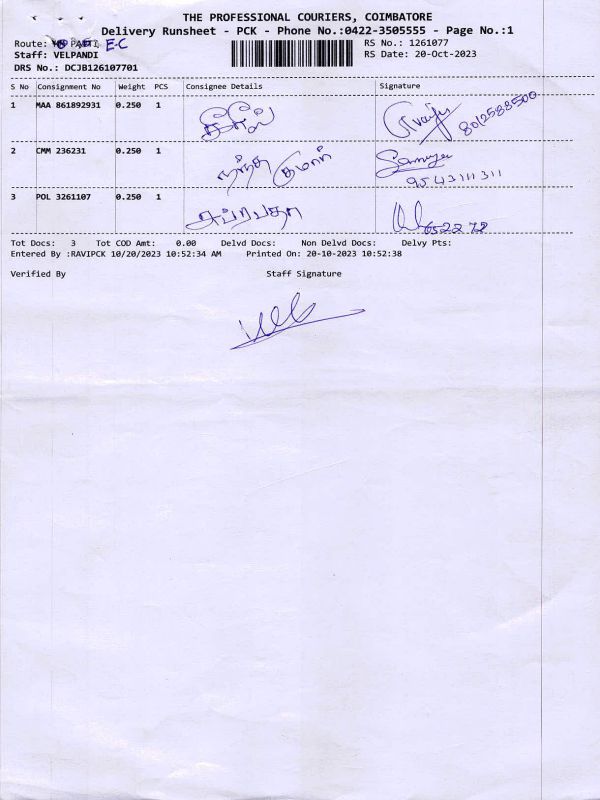 THE PROFESSIONAL COURIERS, COIMBATORE
Delivery Runsheet - PCK - Phone No.:0422-3505555 - Page No.:1
Route: E-C
RS No.: 1261077
Staff: VELPANDI
RS Date: 20-Oct-2023
DRS No.: DCJB126107701
S No Consignment No Weight PCS Consignee Details Signature
1 MAA 861892931 0.250 1
8012588500
2 CMM 236231 0.250 1 குமார்
9543111311
3 POL 3261107 0.250 1
Tot Docs: 3 Tot COD Amt: 0.00 Delvd Docs: Non Delvd Docs: Delvy Pts:
Entered By :RAVIPCK 10/20/2023 10:52:34 AM Printed On: 20-10-2023 10:52:38
Verified By Staff Signature